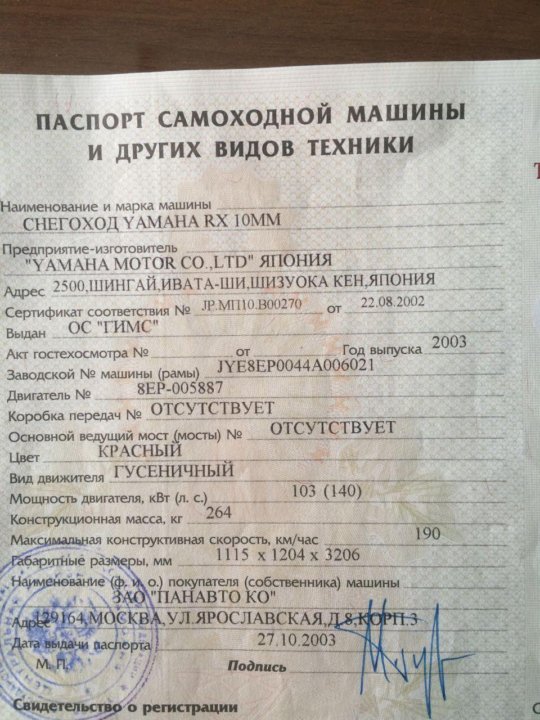 ПАСПОРТ САМОХОДНОЙ МАШИНЫ
И ДРУГИХ ВИДОВ ТЕХНИКИ
Наименование и марка машины
СНЕГОХОД YAMAHA RX 10MM
Предприятие-изготовитель
"YAMAHA MOTOR CO.,LTD" ЯПОНИЯ
Адрес 2500,ШИНГАЙ,ИВАТА-ШИ,ШИЗУОКА КЕН,ЯПОНИЯ
Сертификат соответствия № JP.МП10.В00270 от 22.08.2002
Выдан ОС "ГИМС"
Акт гостехосмотра № от Год выпуска 2003
Заводской № машины (рамы) JYE8EP0044A006021
Двигатель № 8EP-005887
Коробка передач № ОТСУТСТВУЕТ
Основной ведущий мост (мосты) № ОТСУТСТВУЕТ
Цвет КРАСНЫЙ
Вид движителя ГУСЕНИЧНЫЙ
Мощность двигателя, кВт (л. с.) 103 (140)
Конструкционная масса, кг 264
Максимальная конструктивная скорость, км/час 190
Габаритные размеры, мм 1115 x 1204 x 3206
Наименование (ф. и. о.) покупателя (собственника) машины
ЗАО "ПАНАВТО КО"
Адрес 129164,МОСКВА,УЛ.ЯРОСЛАВСКАЯ,Д.8,КОРП.3
Дата выдачи паспорта 27.10.2003
М. П. Подпись
Свидетельство о регистрации